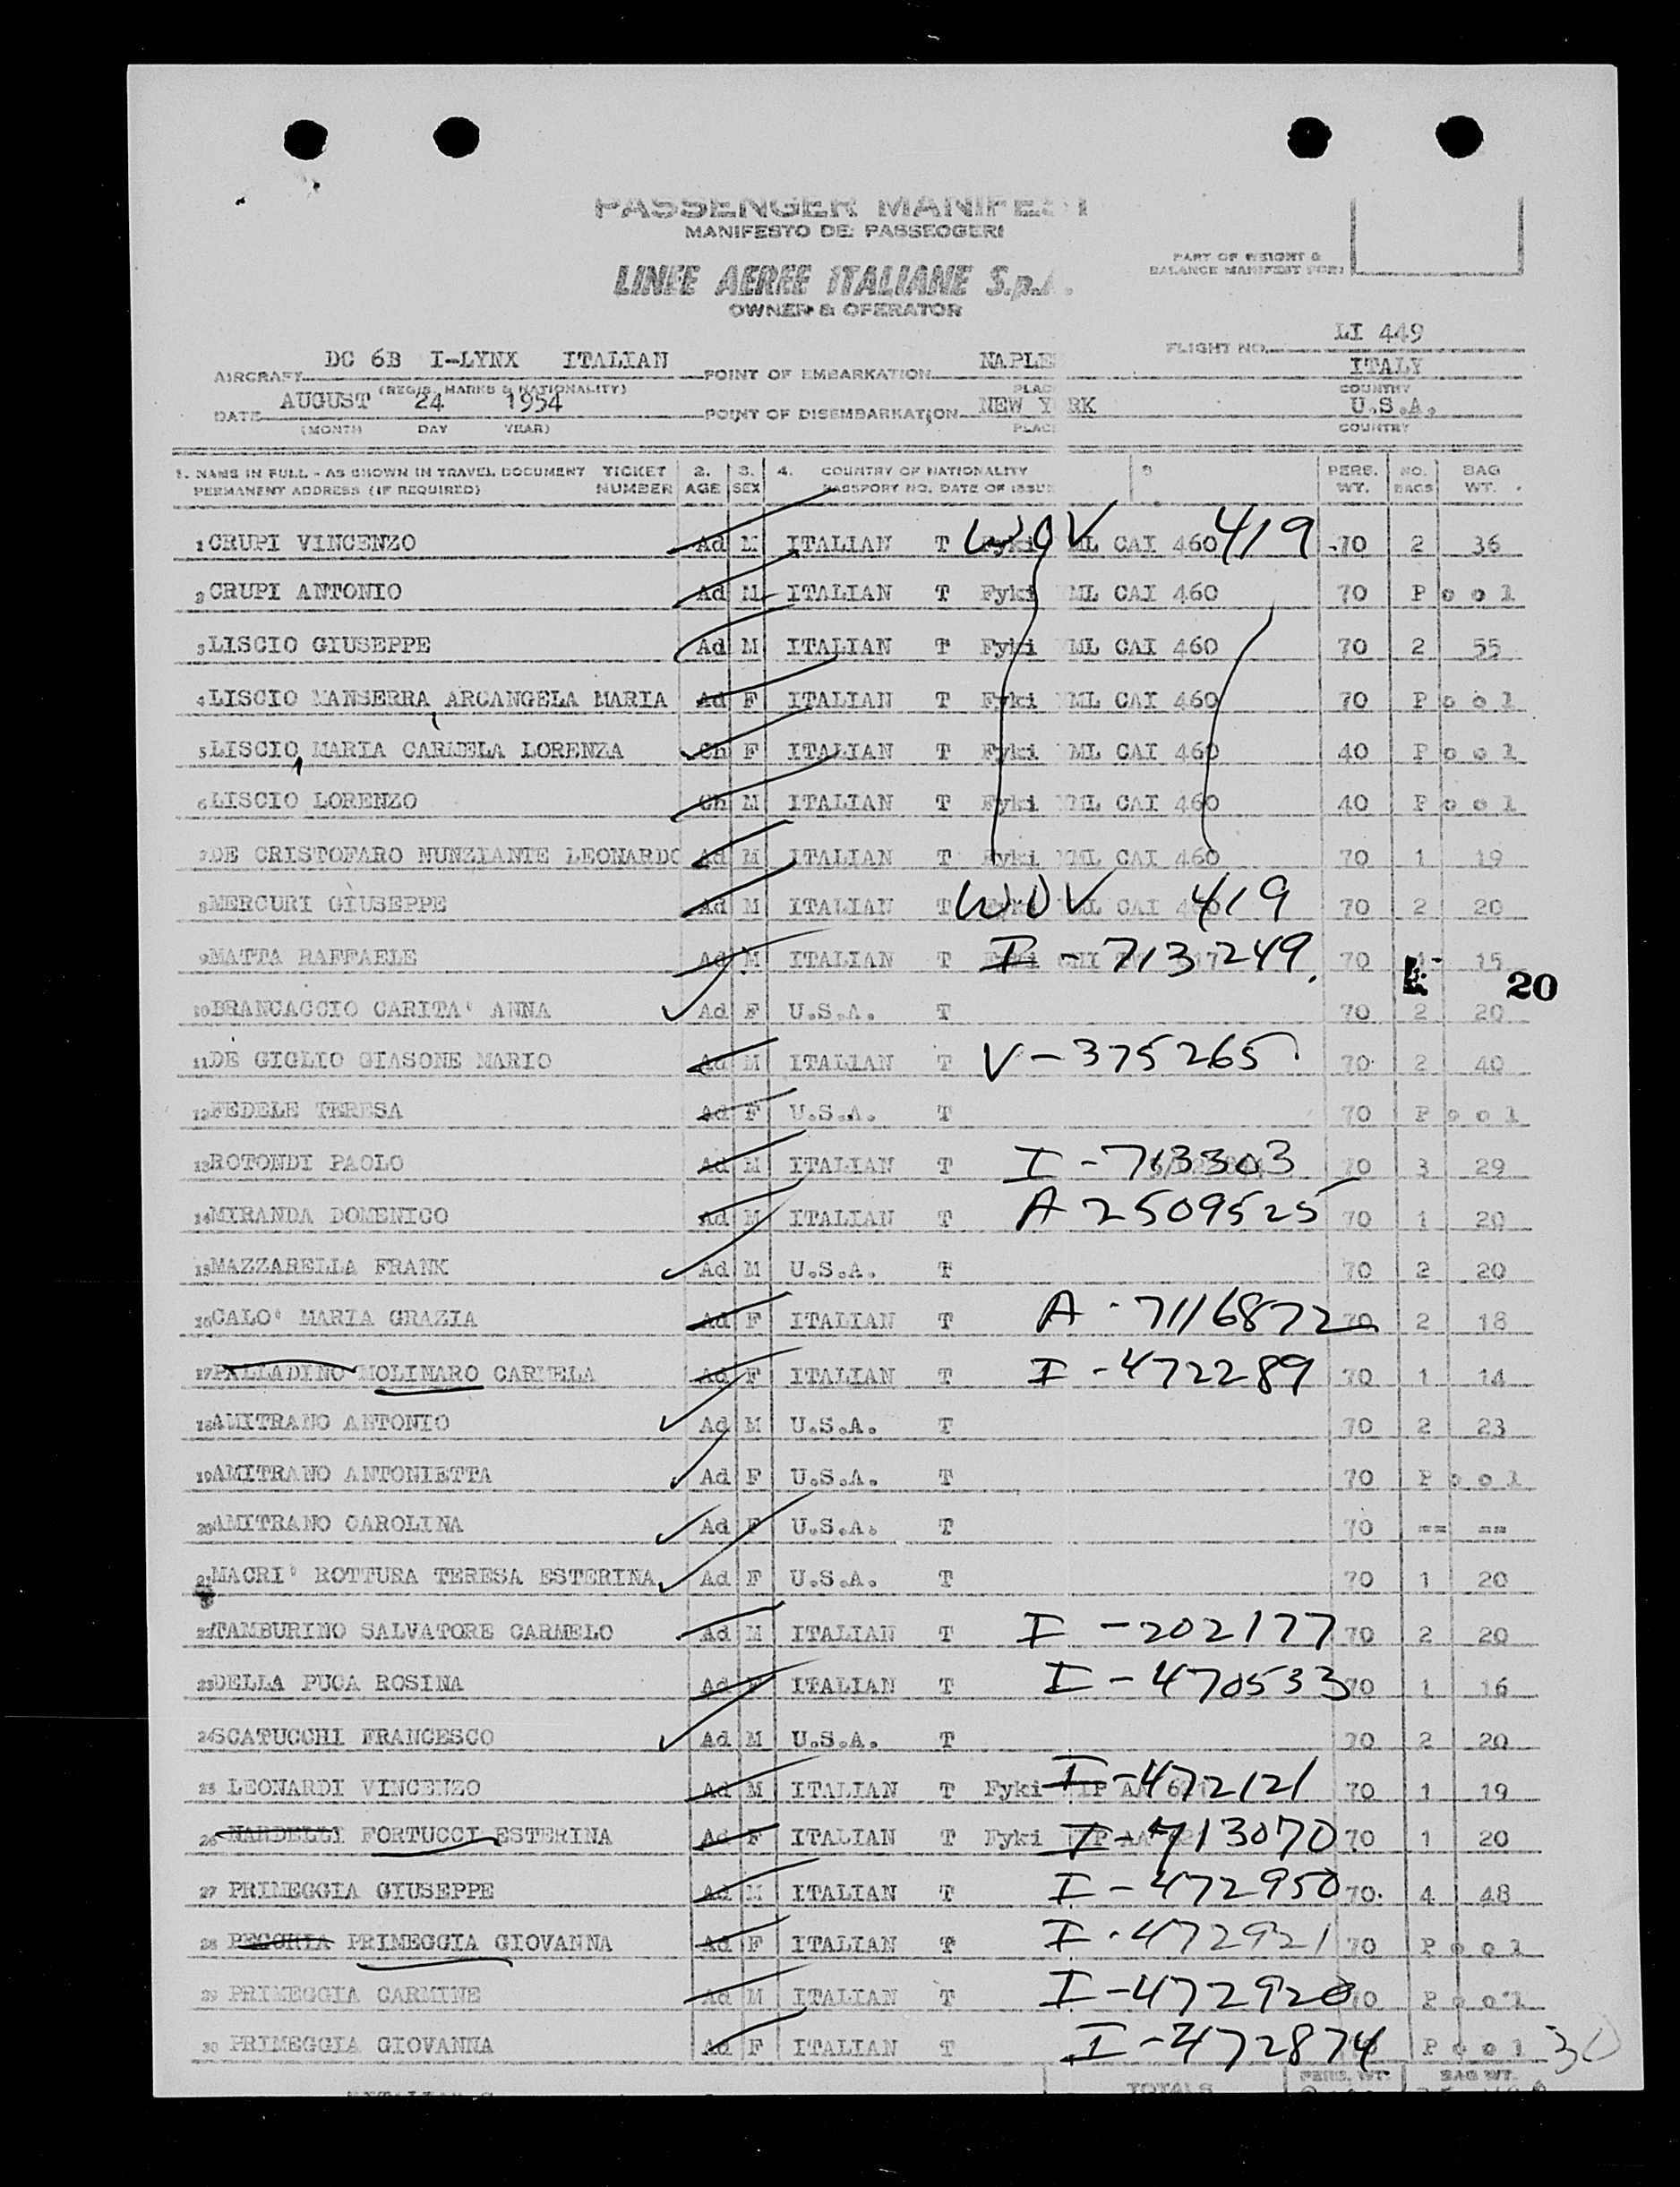 PASSENGER MANIFEST
MANIFESTO DEI PASSEGGERI
LINEE AEREE ITALIANE S.p.A.
OWNER & OPERATOR
PART OF WEIGHT &
BALANCE MANIFEST FOR:
FLIGHT NO. LI 449
AIRCRAFT DC 6B I-LYNX ITALIAN POINT OF EMBARKATION NAPLE ITALY
(REGIS. MARKS & NATIONALITY) PLACE COUNTRY
DATE AUGUST 24 1954 POINT OF DISEMBARKATION NEW YORK U.S.A.
(MONTH DAY YEAR) PLACE COUNTRY
1. NAME IN FULL - AS SHOWN IN TRAVEL DOCUMENT TICKET 2. 3. 4. COUNTRY OF NATIONALITY 5 PERS. NO. BAG
PERMANENT ADDRESS (IF REQUIRED) NUMBER AGE SEX PASSPORT NO. DATE OF ISSUE WT. BAGS WT.
1 CRUPI VINCENZO Ad M ITALIAN T WOV ML CAI 460 419 70 2 36
2 CRUPI ANTONIO Ad M ITALIAN T Fyki ML CAI 460 70 Pool
3 LISCIO GIUSEPPE Ad M ITALIAN T Fyki ML CAI 460 70 2 55
4 LISCIO MANSERRA, ARCANGELA MARIA Ad F ITALIAN T Fyki ML CAI 460 70 Pool
5 LISCIO, MARIA CARMELA LORENZA Ch F ITALIAN T Fyki ML CAI 460 40 Pool
6 LISCIO LORENZO Ch M ITALIAN T Fyki ML CAI 460 40 Pool
7 DE CRISTOFARO NUNZIANTE LEONARDO Ad M ITALIAN T Fyki ML CAI 460 70 1 19
8 MERCURI GIUSEPPE Ad M ITALIAN T WOV CAI 419 70 2 20
9 MATTA RAFFAELE Ad M ITALIAN T I-713249. 70 15
20
10 BRANCACCIO CARITA' ANNA Ad F U.S.A. T 70 2 20
11 DE GIGLIO GIASONE MARIO Ad M ITALIAN T V-375265 70 2 40
12 FEDELE TERESA Ad F U.S.A. T 70 Pool
13 ROTONDI PAOLO Ad M ITALIAN T I-713303 70 3 29
14 MIRANDA DOMENICO Ad M ITALIAN T A 2509525 70 1 20
15 MAZZARELLA FRANK Ad M U.S.A. T 70 2 20
16 CALO' MARIA GRAZIA Ad F ITALIAN T A-7116872 70 2 18
17 PALLADINO MOLINARO CARMELA Ad F ITALIAN T I-472289 70 1 14
18 AMITRANO ANTONIO Ad M U.S.A. T 70 2 23
19 AMITRANO ANTONIETTA Ad F U.S.A. T 70 Pool
20 AMITRANO CAROLINA Ad F U.S.A. T 70 == ==
21 MACRI' ROTTURA TERESA ESTERINA Ad F U.S.A. T 70 1 20
22 TAMBURINO SALVATORE CARMELO Ad M ITALIAN T I-202177 70 2 20
23 DELLA PUCA ROSINA Ad F ITALIAN T I-470533 70 1 16
24 SCATUCCHI FRANCESCO Ad M U.S.A. T 70 2 20
25 LEONARDI VINCENZO Ad M ITALIAN T Fyki I-472121 70 1 19
26 NARDELLI FORTUCCI ESTERINA Ad F ITALIAN T Fyki I-713070 70 1 20
27 PRIMEGGIA GIUSEPPE Ad M ITALIAN T I-472950 70 4 48
28 PECORIA PRIMEGGIA GIOVANNA Ad F ITALIAN T I-472921 70 Pool
29 PRIMEGGIA CARMINE Ad M ITALIAN T I-472920 70 Pool
30 PRIMEGGIA GIOVANNA Ad F ITALIAN T I-472874 Pool 30
TOTALS PERS. WT. BAG WT.